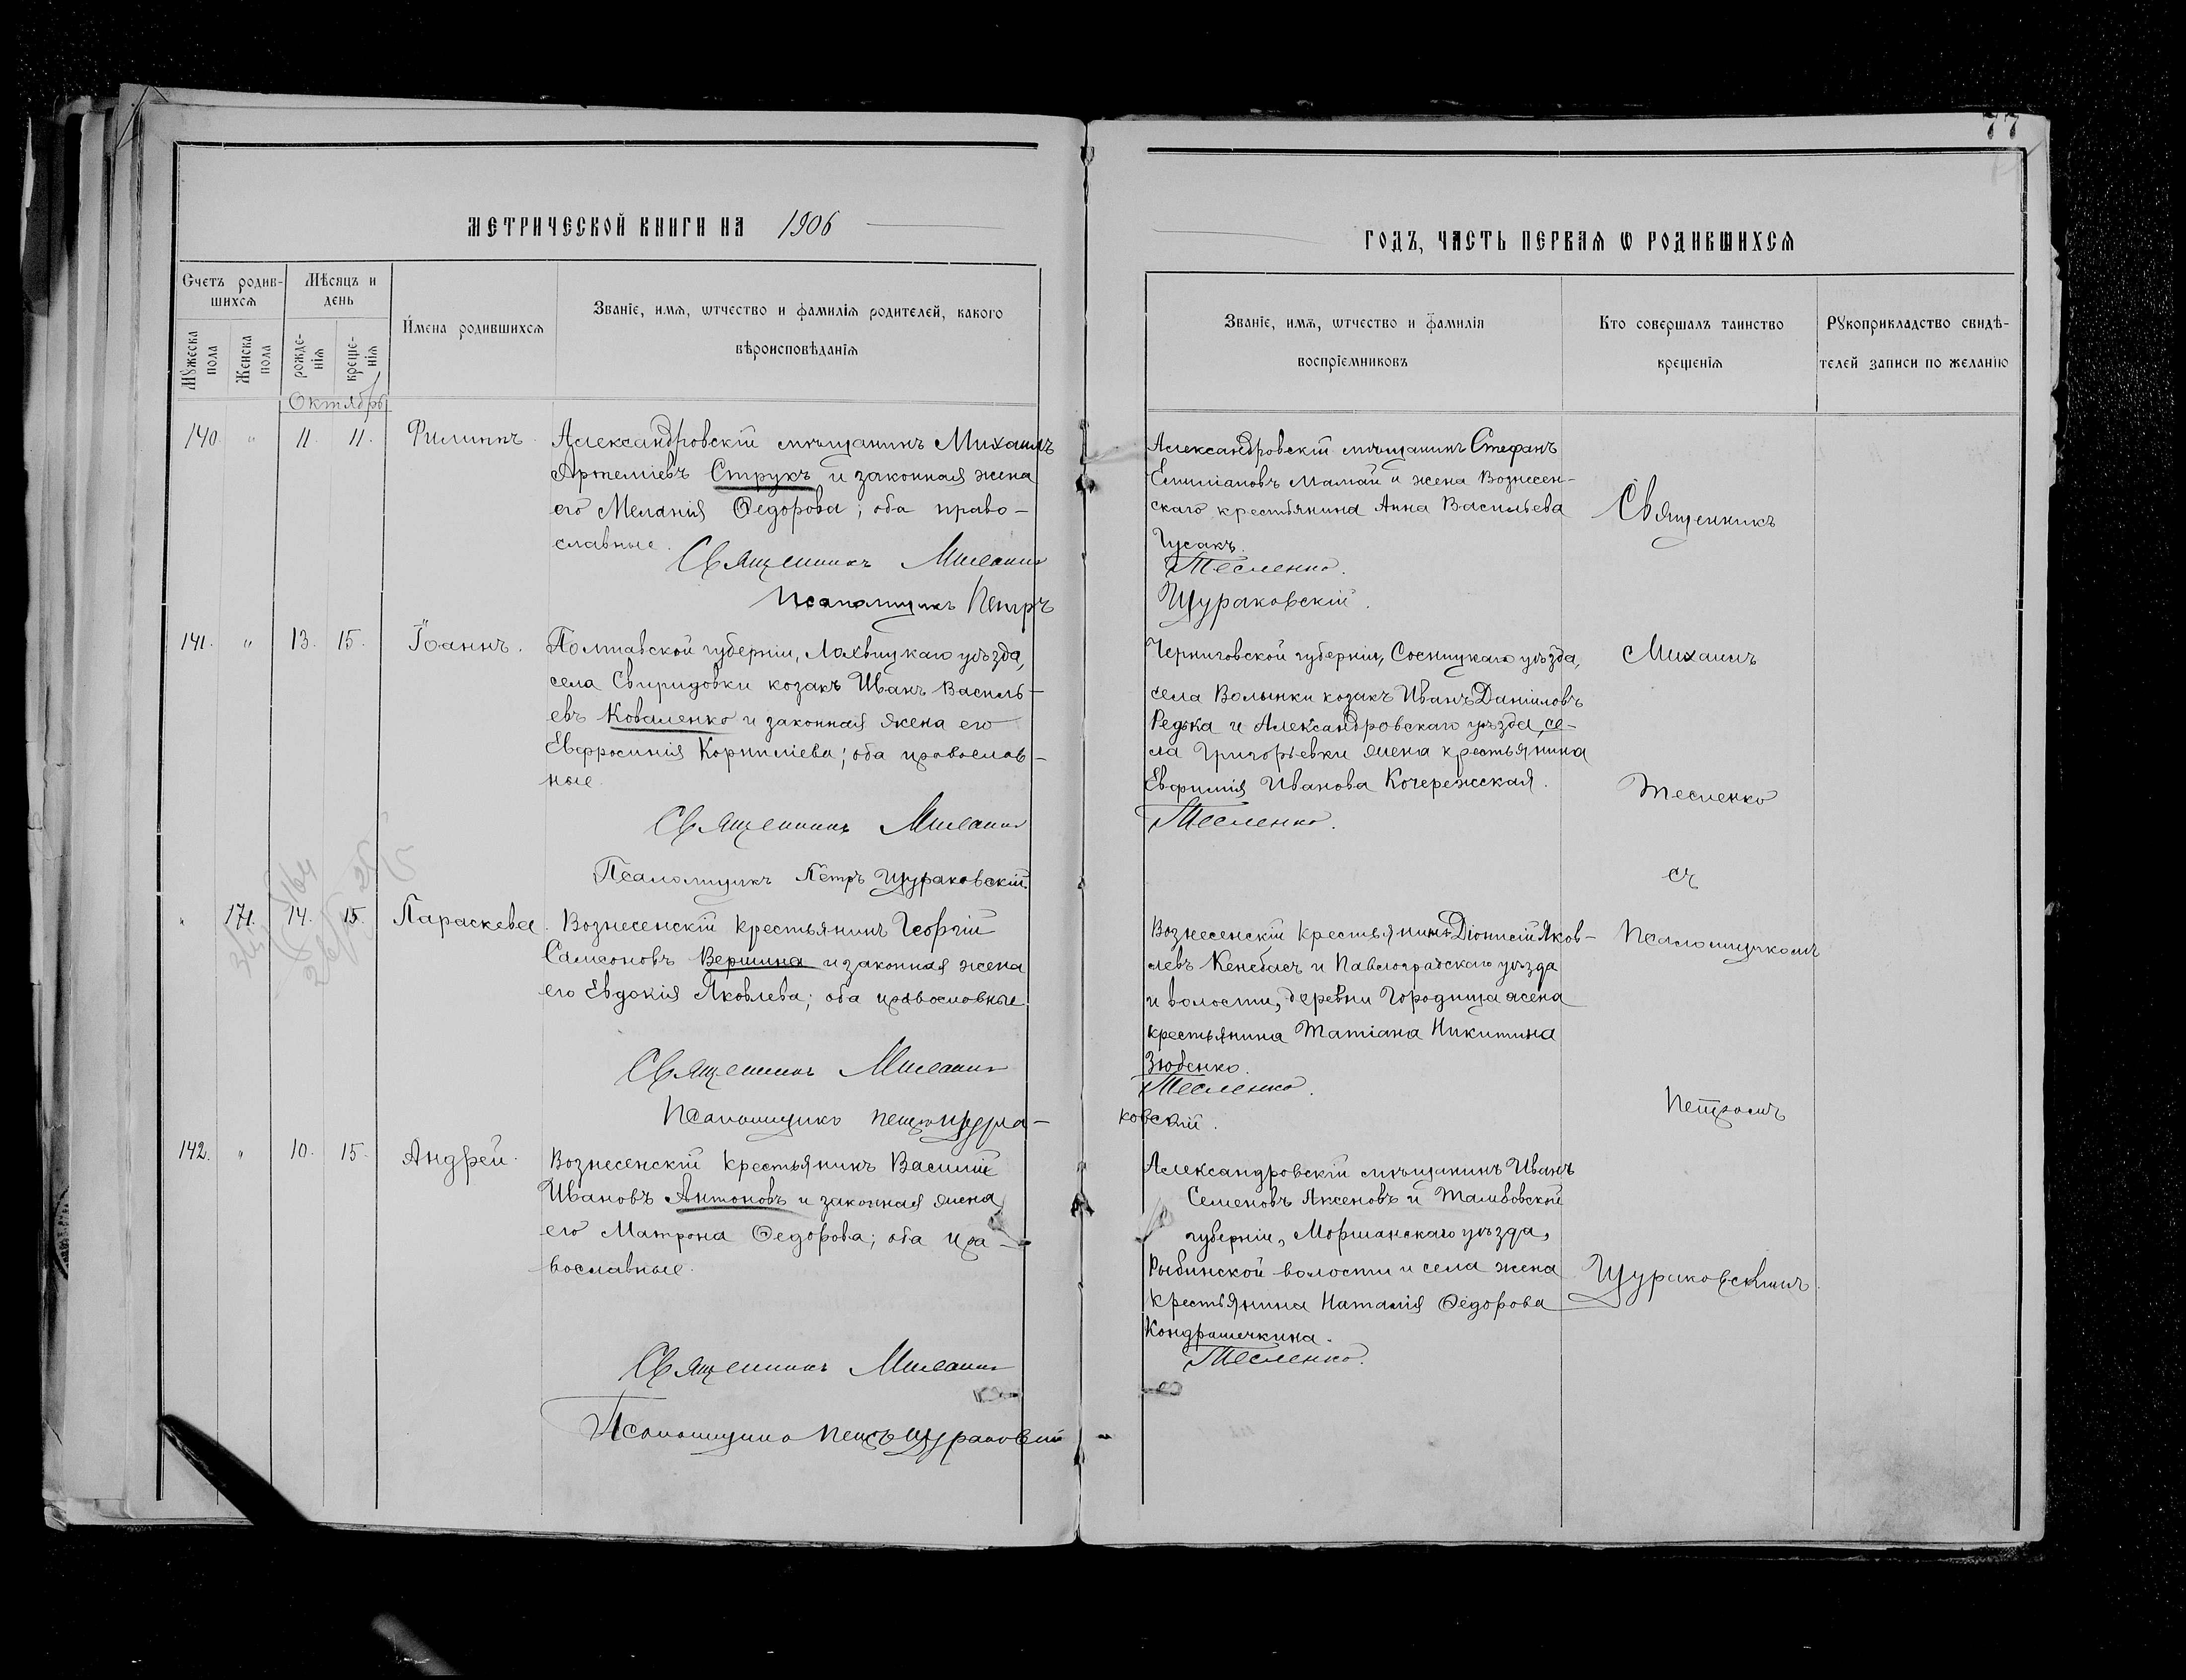 77
МЕТРИЧЕСКОЙ КНИГИ НА 1906
ГОДЪ, ЧАСТЬ ПЕРВАѦ Ѡ РОДИВШИХСѦ
Счетъ родив-
шихсѧ
Мѣсяцъ и
день
Мꙋжеска
пола
Женска
пола
рожде-
нїѧ
креще-
нїѧ
Имена родившихсѧ
Званїе, имѧ, ѡтчество и фамилїѧ родителей, какого
вѣроисповѣданїѧ
Званїе, имѧ, ѡтчество и фамилїѧ
воспрїемниковъ
Кто совершалъ таинство
крещенїѧ
Рꙋкоприкладство свидѣ-
телей записи по желанїю
Октябрь
140 " 11. 11. Филиппъ.
Александровскій мѣщанинъ Михаилъ
Артеміевъ Струкъ и законная жена
его Меланія Ѳедорова; оба право-
славные.
Священникъ Михаилъ
Псаломщикъ Петръ
Александровскій мѣщанинъ Стефанъ
Емиліановъ Мамай и жена Вознесен-
скаго крестьянина Анна Васильева
Гусакъ.
Тесленко.
Щураковскій.
Священникъ
141. " 13. 15. Іоаннъ.
Полтавской губерніи, Лохвицкаго уѣзда,
села Свиридовки козакъ Иванъ Василь-
евъ Коваленко и законная жена его
Евфросинія Корниліева; оба православ-
ные.
Священникъ Михаилъ
Псаломщикъ Петръ Щураковскій.
Черниговской губерніи, Сосницкаго уѣзда,
села Волынки козакъ Иванъ Даніиловъ
Редька и Александровскаго уѣзда, се-
ла Григорьевки жена крестьянина
Евфимія Иванова Кочережская.
Тесленко.
Михаилъ
Тесленко
съ
" 171. 14. 15. Параскева.
Вознесенскій крестьянинъ Георгій
Самсоновъ Вершина и законная жена
его Евдокія Яковлева; оба православные
Священникъ Михаилъ
Псаломщикъ Петръ Щура-
Вознесенскій крестьянинъ Діонисій Яков-
левъ Кенебасъ и Павлоградскаго уѣзда
и волости, деревни Городища жена
крестьянина Татіана Никитина
Зюбенко.
Тесленко.
ковскій.
Псаломщикомъ
Петромъ
142. " 10. 15. Андрей.
Вознесенскій крестьянинъ Василій
Ивановъ Антоновъ и законная жена
его Матрона Ѳедорова; оба пра-
вославные.
Священникъ Михаилъ
Псаломщикъ Петръ Щураковскій
Александровскій мѣщанинъ Иванъ
Семеновъ Аксеновъ и Тамбовской
губерніи, Моршанскаго уѣзда,
Рыбинской волости и села жена
крестьянина Наталія Ѳедорова
Кондрашечкина.
Тесленко.
Щураковскимъ.